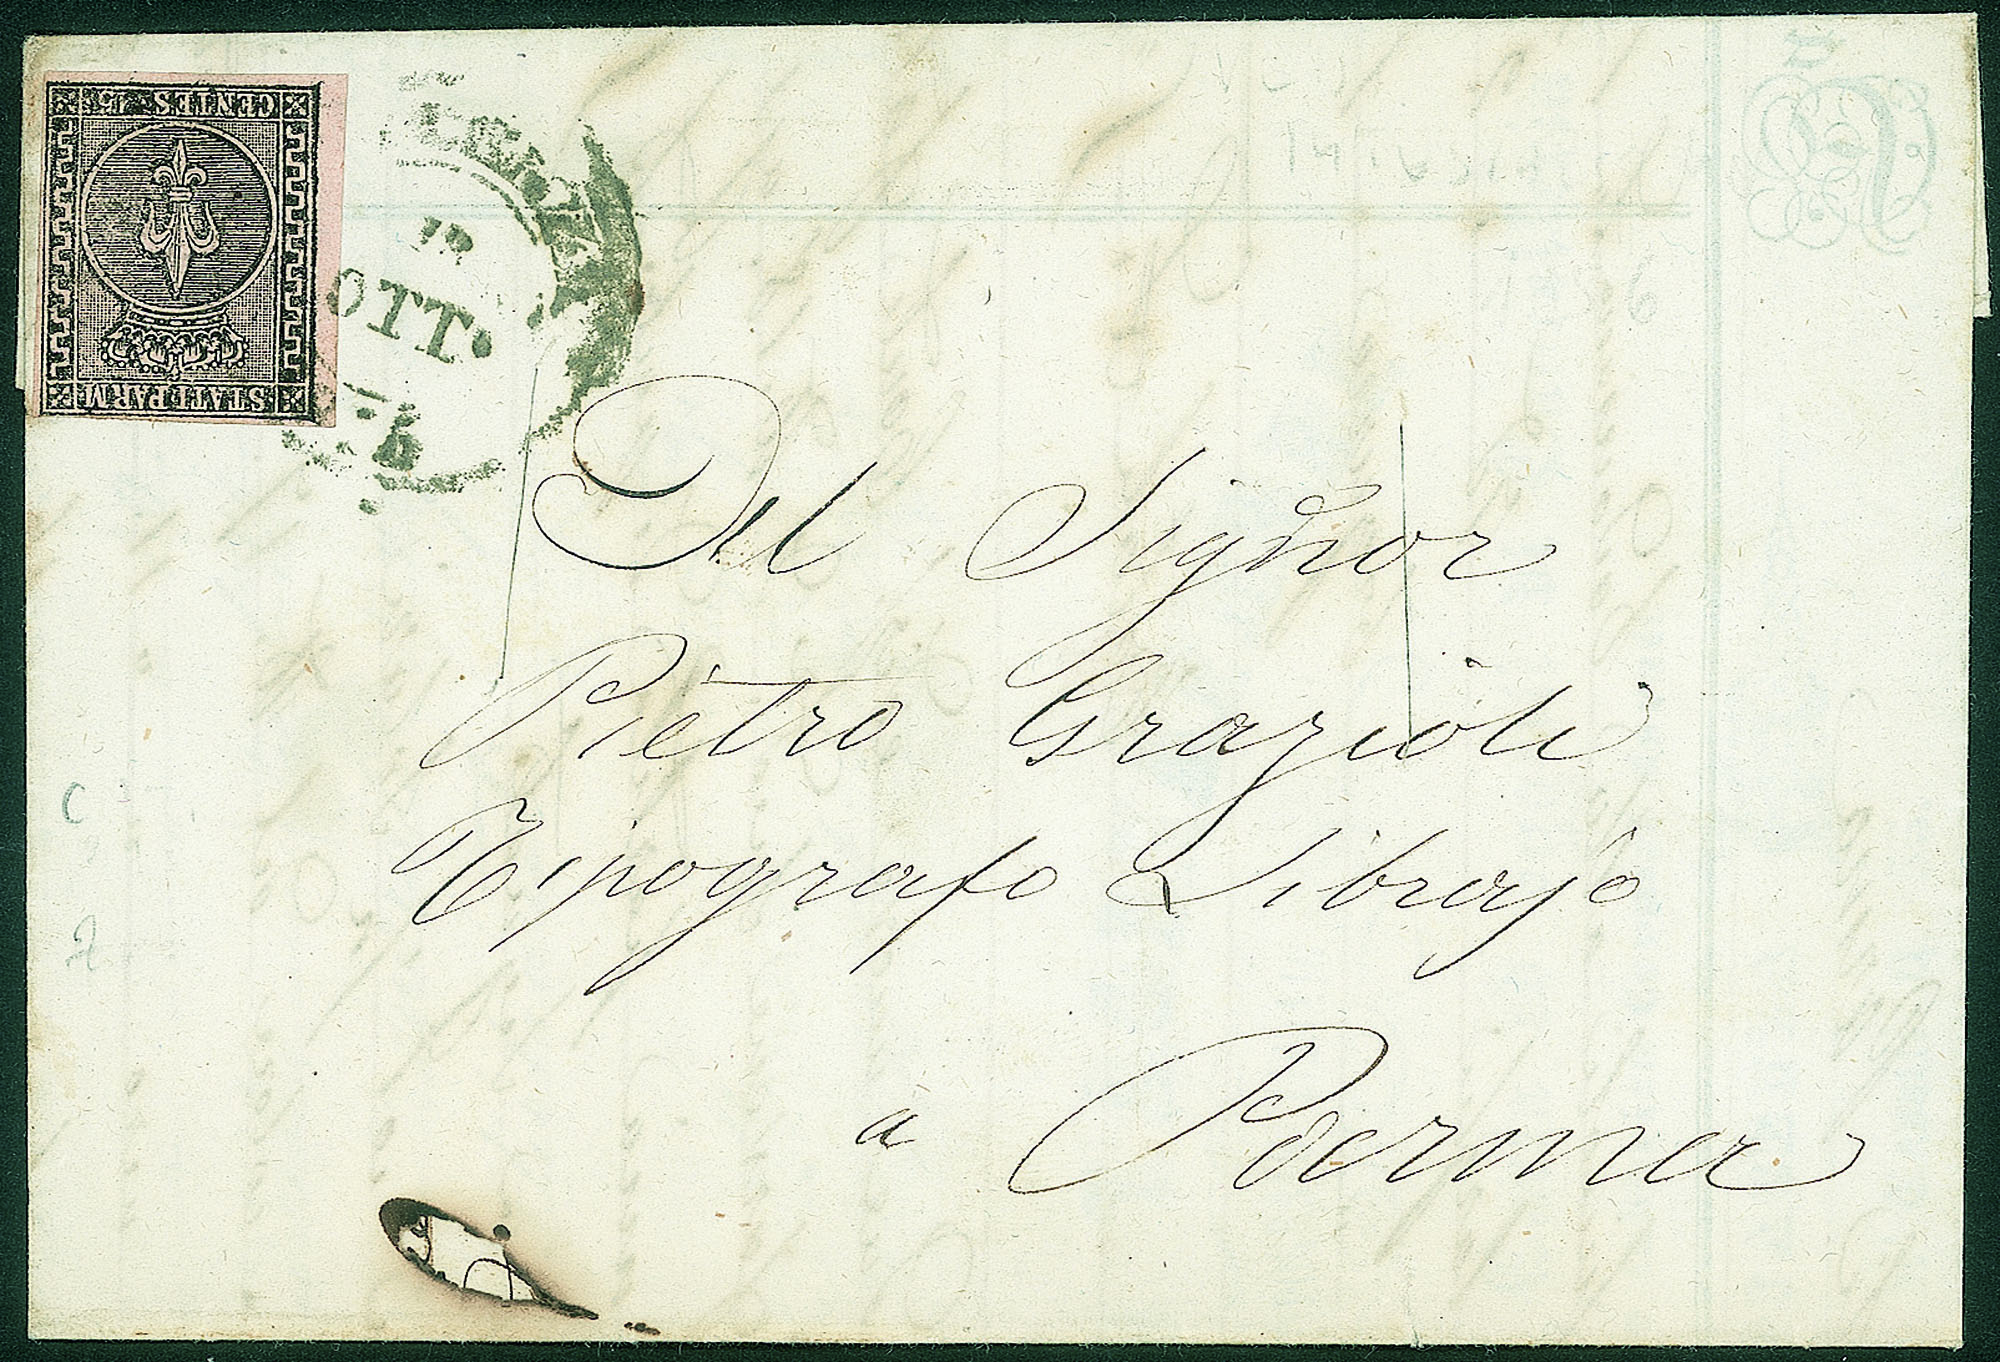 CENTES. 15
STATI PARM
12
OTT.
Al Signor
Pietro Grazioli
Tipografo Librajo
a Parma